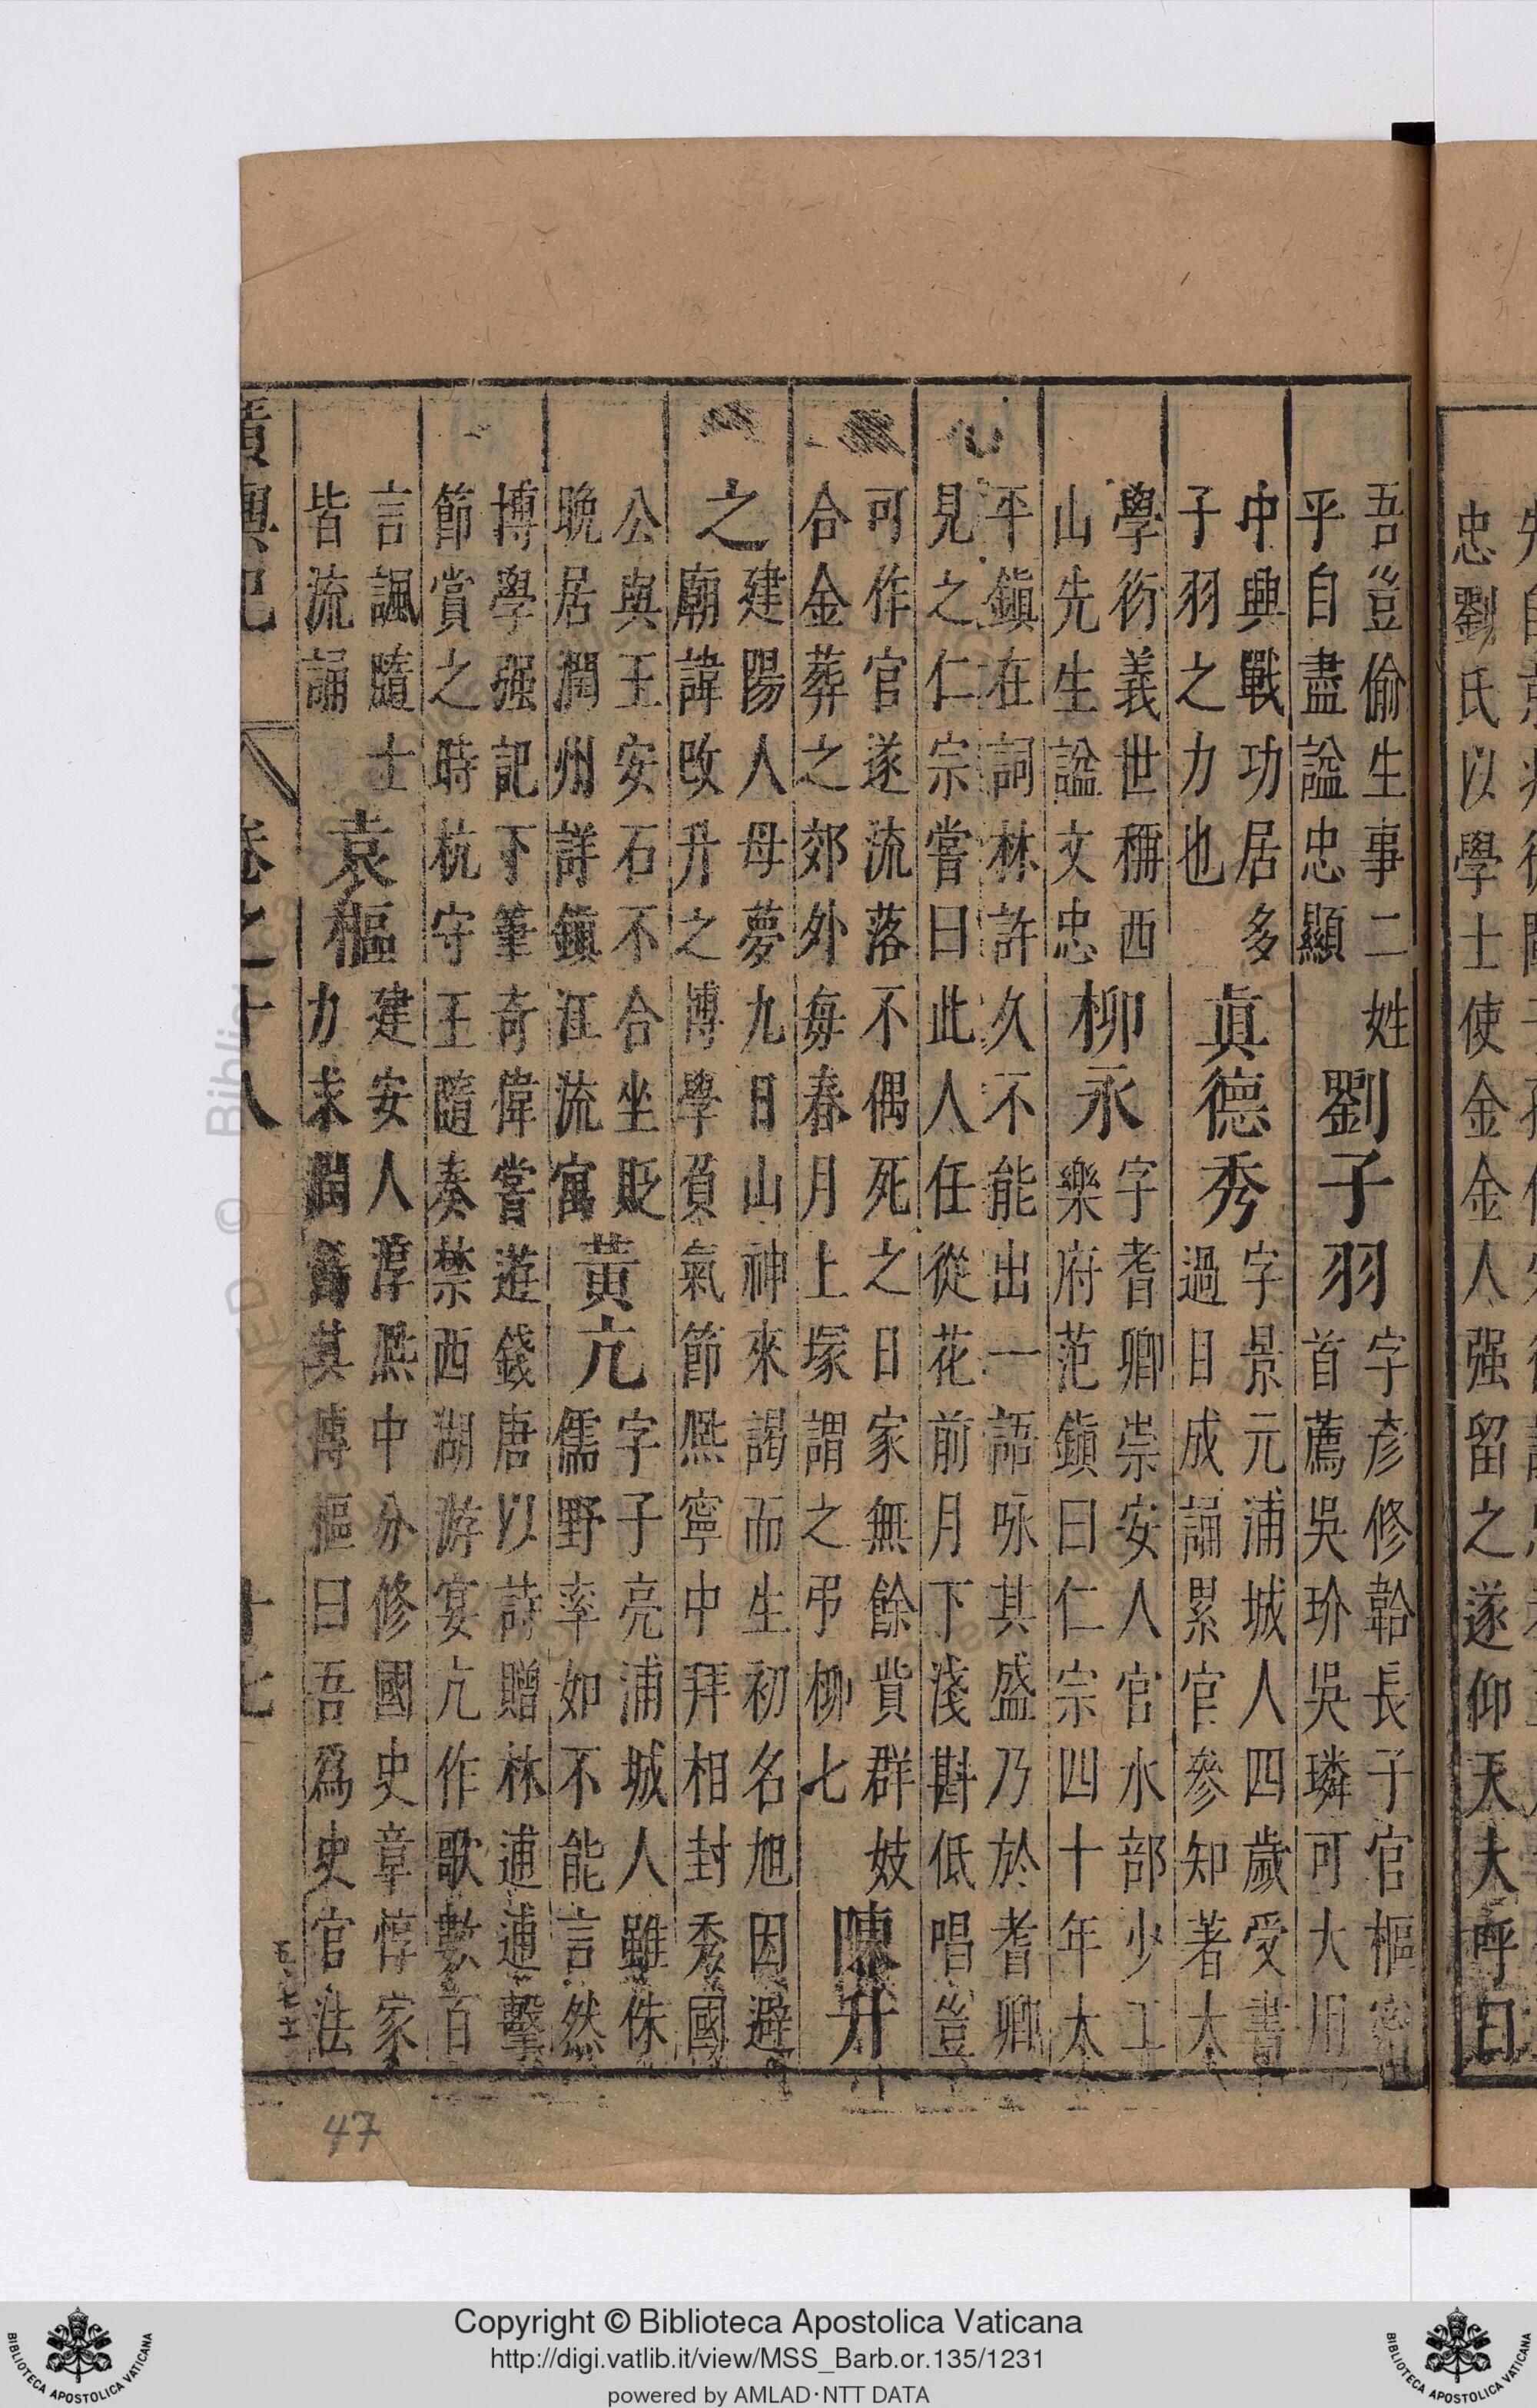 忠劉氏以學士使金金人强留之遂仰天大呼曰
吾豈偷生事二姓
乎自盡諡忠顯
劉子羽
字彥修韐長子官樞密
首薦吳玠吳璘可大用
中興戰功居多
子羽之力也
眞德秀
字景元浦城人四歲受書
過目成誦累官參知著大
學衍義世稱西
山先生諡文忠
柳永
字耆卿崇安人官水部少工
樂府范鎮曰仁宗四十年太
平鎮在詞林許久不能出一語咏其盛乃於耆卿
見之仁宗嘗曰此人任從花前月下淺斟低唱豈
可作官遂流落不偶死之日家無餘貲群妓
合金葬之郊外每春月上塚謂之弔柳七
陳升
之
建陽人母夢九日山神來謁而生初名旭因避
廟諱改升之博學負氣節熙寧中拜相封秀國
公與王安石不合坐貶
晚居潤州詳鎮江流寓
黃亢
字子亮浦城人雖侏
儒野率如不能言然
博學强記下筆奇偉嘗遊錢唐以詩贈林逋逋擊
節賞之時杭守王隨奏禁西湖游宴亢作歌數百
言諷隨士
皆流誦
袁樞
建安人淳熙中分修國史章惇家
力求潤其傳樞曰吾爲史官法
廣輿記 卷之十八 十七
47
Copyright © Biblioteca Apostolica Vaticana
http://digi.vatlib.it/view/MSS_Barb.or.135/1231
powered by AMLAD·NTT DATA